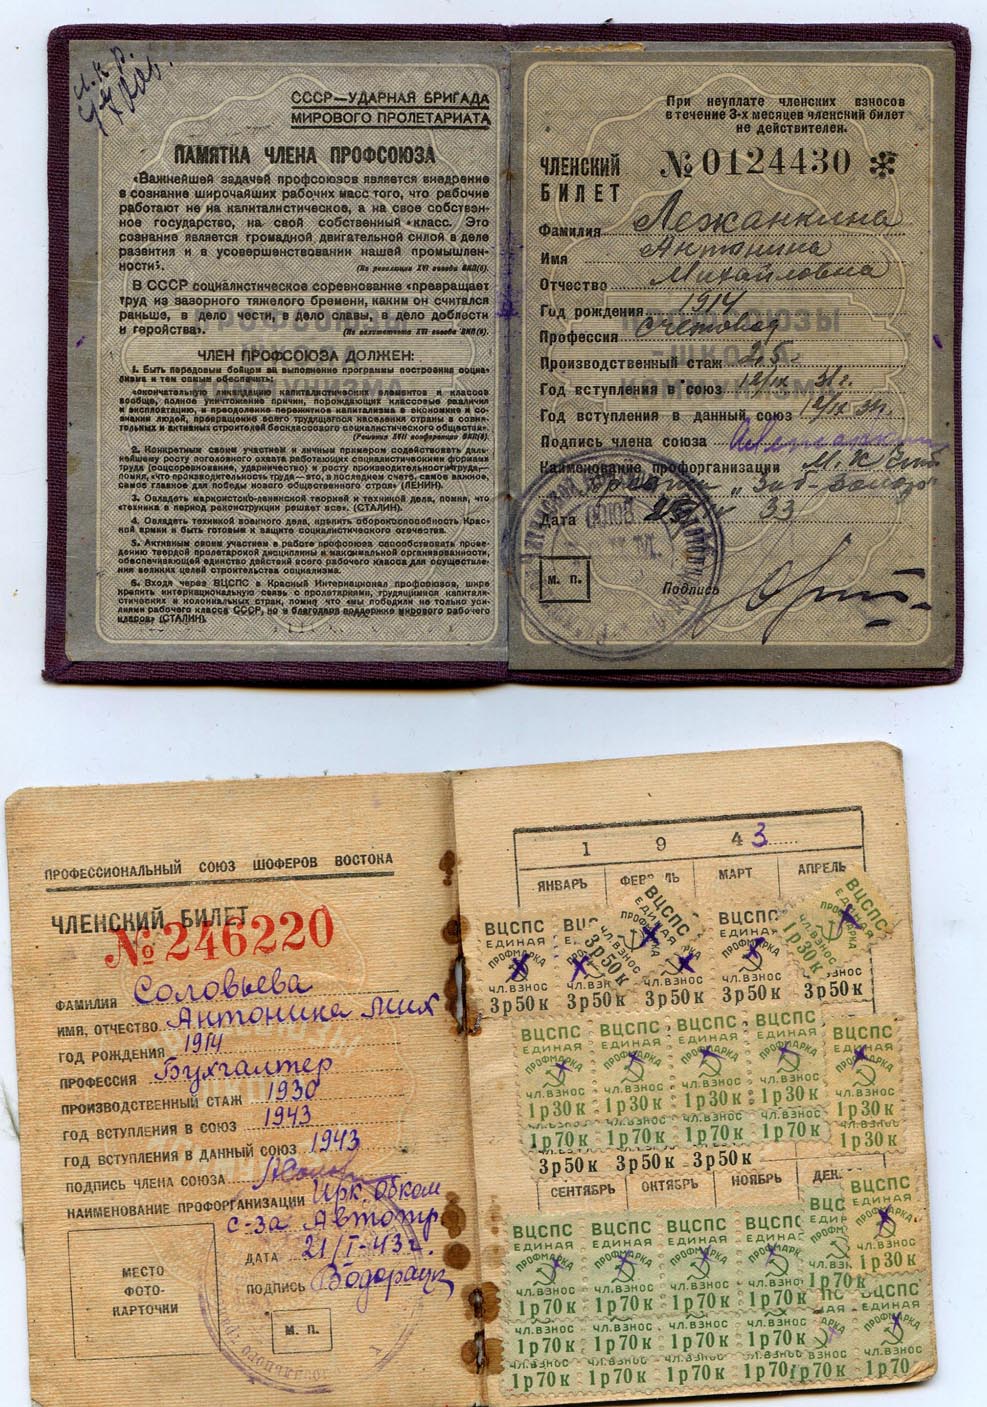 СССР—УДАРНАЯ БРИГАДА
МИРОВОГО ПРОЛЕТАРИАТА
ПАМЯТКА ЧЛЕНА ПРОФСОЮЗА
«Важнейшей задачей профсоюзов является внедрение
в сознание широчайших рабочих масс того, что рабочие
работают не на капиталистическое, а на свое собствен-
ное государство, на свой собственный класс. Это
сознание является громадной двигательной силой в деле
развития и в усовершенствовании нашей промышлен-
ности».
(Из резолюции XVI съезда ВКП(б).
В СССР социалистическое соревнование «превращает
труд из зазорного тяжелого бремени, каким он считался
раньше, в дело чести, в дело славы, в дело доблести
и геройства».
ЧЛЕН ПРОФСОЮЗА ДОЛЖЕН:
1. Быть передовым бойцом за выполнение программы построения социа-
лизма и тем самым обеспечить:
«окончательную ликвидацию капиталистических элементов и классов
вообще, полное уничтожение причин, порождающих классовые различия
и эксплоатацию, и преодоление пережитков капитализма в экономике и со-
знании людей, превращение всего трудящегося населения страны в созна-
тельных и активных строителей бесклассового социалистического общества».
(Решения XVII конференции ВКП(б).
2. Конкретным своим участием и личным примером содействовать даль-
нейшему росту поголовного охвата работающих социалистическими формами
труда (соцсоревнование, ударничество) и росту производительности труда,—
помня, «что производительность труда—это, в последнем счете, самое важное,
самое главное для победы нового общественного строя» (ЛЕНИН).
3. Овладеть марксистско-ленинской теорией и техникой дела, помня, что
«техника в период реконструкции решает все». (СТАЛИН).
4. Овладеть техникой военного дела, крепить обороноспособность Крас-
ной армии и быть готовым к защите социалистического отечества.
5. Активным своим участием в работе профсоюзов способствовать прове-
дению твердой пролетарской дисциплины и максимальной организованности,
обеспечивающей единство действий всего рабочего класса для осуществле-
ния великих целей строительства социализма.
6. Входя через ВЦСПС в Красный Интернационал профсоюзов, шире
крепить интернациональную связь с пролетариями, трудящимися капитали-
стических и колониальных стран, помня что «мы победили не только уси-
лиями рабочего класса СССР, но и благодаря поддержке мирового рабочего
класса» (СТАЛИН).
При неуплате членских взносов
в течение 3-х месяцев членский билет
не действителен.
ЧЛЕНСКИЙ БИЛЕТ №0124430
Фамилия Лежанкина
Имя Антонина
Отчество Михайловна
Год рождения 1914
Профессия счетовод
Производственный стаж 2,5 г.
Год вступления в союз 12/IX 31г.
Год вступления в данный союз 12/IX 31г.
Подпись члена союза
Наименование профорганизации
Дата 33
М. П.
Подпись
ПРОФЕССИОНАЛЬНЫЙ СОЮЗ ШОФЕРОВ ВОСТОКА
ЧЛЕНСКИЙ БИЛЕТ
№246220
ФАМИЛИЯ Соловьева
ИМЯ, ОТЧЕСТВО Антонина Мих
ГОД РОЖДЕНИЯ 1914
ПРОФЕССИЯ Бухгалтер
ПРОИЗВОДСТВЕННЫЙ СТАЖ 1930
ГОД ВСТУПЛЕНИЯ В СОЮЗ 1943
ГОД ВСТУПЛЕНИЯ В ДАННЫЙ СОЮЗ 1943
ПОДПИСЬ ЧЛЕНА СОЮЗА
НАИМЕНОВАНИЕ ПРОФОРГАНИЗАЦИИ Ирк. обком
с-за Автотр
ДАТА 21/I-43 г.
ПОДПИСЬ
МЕСТО
ФОТО-
КАРТОЧКИ
М. П.
1943
ЯНВАРЬ МАРТ АПРЕЛЬ
ВЦСПС ВЦСПС ВЦСПС ВЦСПС
ЕДИНАЯ ЕДИНАЯ ЕДИНАЯ ЕДИНАЯ
ПРОФМАРКА ПРОФМАРКА ПРОФМАРКА 1р30к
ЧЛ.ВЗНОС ЧЛ.ВЗНОС ЧЛ.ВЗНОС ЧЛ.ВЗНОС
3р50к 3р50к 3р50к 3р50к 3р50к
ВЦСПС ВЦСПС ВЦСПС ВЦСПС ВЦСПС
ЕДИНАЯ ЕДИНАЯ ЕДИНАЯ ЕДИНАЯ ЕДИНАЯ
ПРОФМАРКА ПРОФМАРКА ПРОФМАРКА ПРОФМАРКА ПРОФМАРКА
ЧЛ.ВЗНОС ЧЛ.ВЗНОС ЧЛ.ВЗНОС ЧЛ.ВЗНОС ЧЛ.ВЗНОС
1р30к 1р30к 1р30к 1р30к 1р30к
1р70к 1р70к 1р70к 1р70к 1р30к
3р50к 3р50к 3р50к
СЕНТЯБРЬ ОКТЯБРЬ НОЯБРЬ
ВЦСПС ВЦСПС ВЦСПС ВЦСПС ВЦСПС
ЕДИНАЯ ЕДИНАЯ ЕДИНАЯ ЕДИНАЯ ЕДИНАЯ
ПРОФМАРКА ПРОФМАРКА ПРОФМАРКА ПРОФМАРКА ПРОФМАРКА
ЧЛ.ВЗНОС
1р30к
1р70к 1р70к 1р70к 1р70к 1р70к
ЧЛ.ВЗНОС ЧЛ.ВЗНОС ЧЛ.ВЗНОС ЧЛ.ВЗНОС
1р70к 1р70к 1р70к 1р70к
1р70к 1р70к 1р70к 1р70к 1р70к 1р70